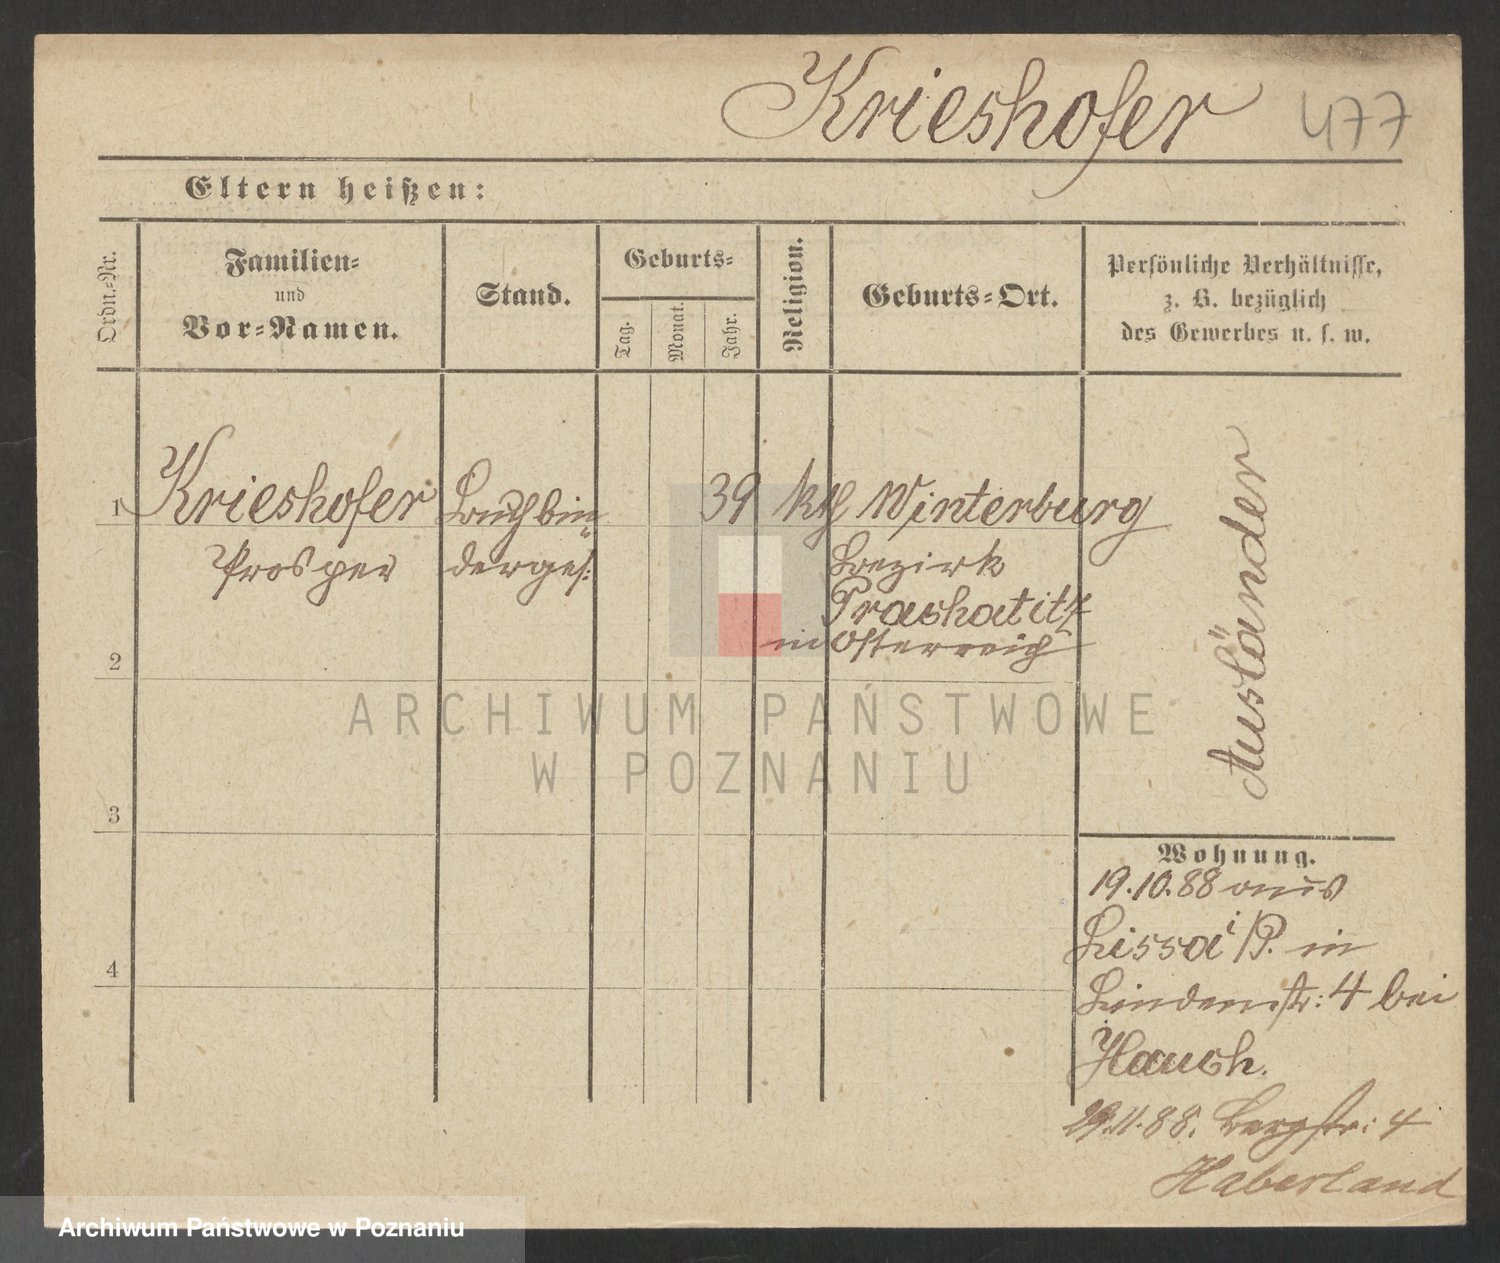 Krieshofer 477
Eltern heißen:
Ordn.-Nr.
Familien-
und
Vor-Namen.
Stand.
Geburts-
Tag.
Monat.
Jahr.
Religion.
Geburts-Ort.
Persönliche Verhältnisse,
z. B. bezüglich
des Gewerbes u. s. w.
1 Krieshofer Buchbin 39 kth Winterburg
Prosper derges: Bezirk
Prashatitz
in Österreich
Ausländer
2
3
4
Wohnung.
19.10.88 aus
Lissa i/P. in
Lindenstr: 4 bei
Haush.
29.11.88. Bergstr: 4
Haberland
ARCHIWUM PAŃSTWOWE
W POZNANIU
Archiwum Państwowe w Poznaniu